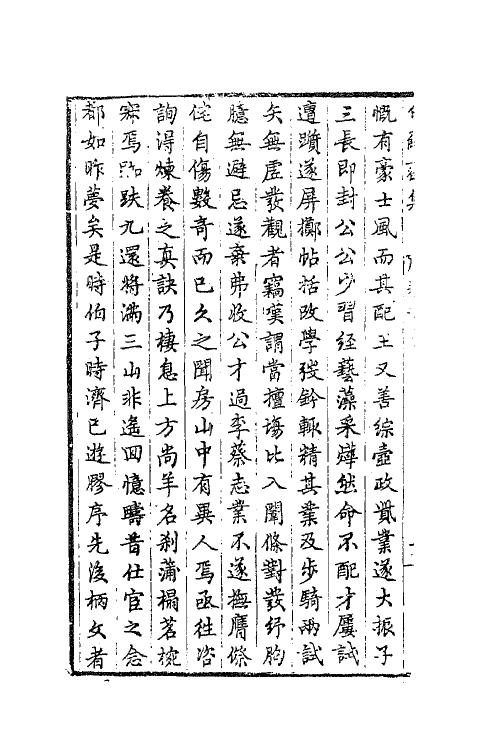 慨有豪士風而其配王又善綜壼政貲業遂大振子
三長即封公公少習經藝藻采燁然命不配才屢試
遭躓遂屏擲帖括改學弢鈐輙精其業及步騎兩試
矢無虛發觀者竊嘆謂當擅塲比入闈條對發紓胸
臆無避忌遂棄弗收公才過李蔡志業不遂撫膺傺
侘自傷數奇而已久之聞房山中有異人焉亟往咨
詢得煉養之真訣乃棲息上方尚羊名刹蒲榻茗椀
寂焉跏趺九還將滿三山非遙回憶疇昔仕宦之念
都如昨夢矣是時伯子時濟已遊膠序先後柄文者